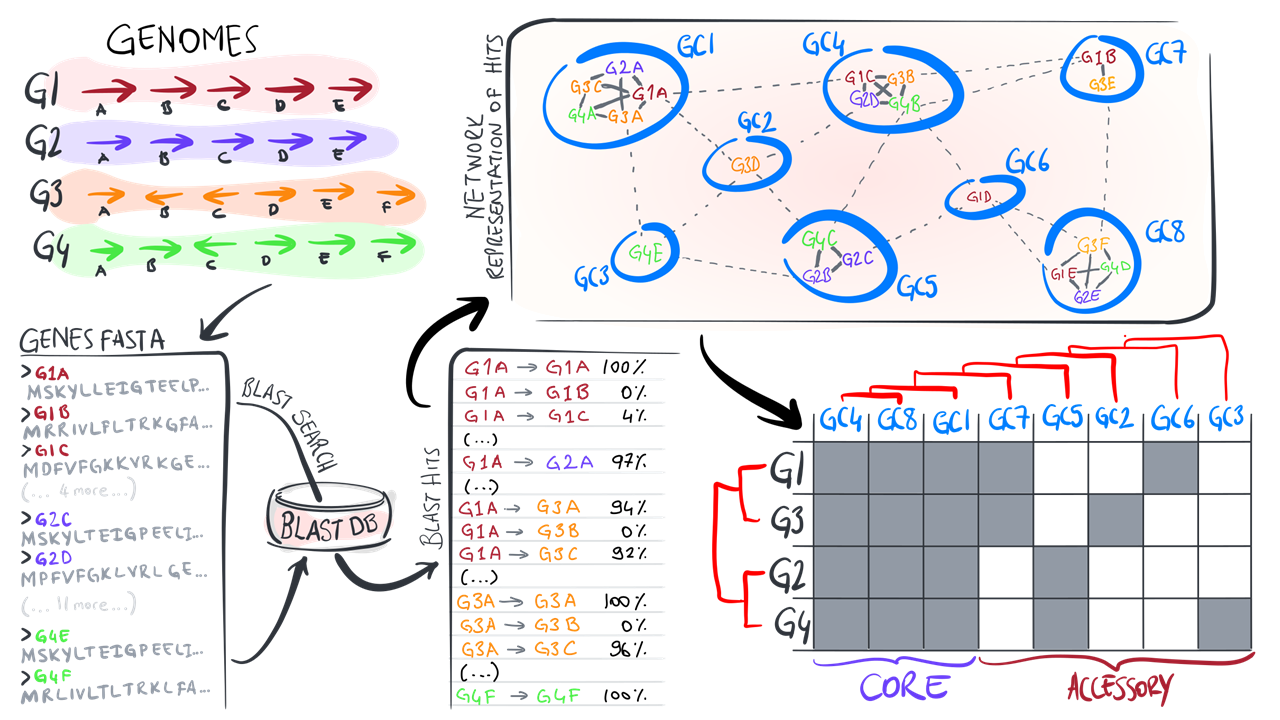 GENOMES
G1
A B C D E
G2
A B C D E
G3
A B C D E F
G4
A B C D E F
GENES FASTA
>G1A
MSKYLLEIGTEELP...
>G1B
MRRIVLFLTRKGFA...
>G1C
MDFVFGKKVRKGE...
(... 4 more...)
>G2C
MSKYLTEIGPEELI...
>G2D
MPFVFGKLVRLGE...
(... 11 more...)
>G4E
MSKYLTEIGPEELI...
>G4F
MRLIVLTLTRKLFA...
BLAST SEARCH
BLAST DB
BLAST HITS
G1A → G1A 100%
G1A → G1B 0%
G1A → G1C 4%
(...)
G1A → G2A 97%
(...)
G1A → G3A 94%
G1A → G3B 0%
G1A → G3C 92%
(...)
G3A → G3A 100%
G3A → G3B 0%
G3A → G3C 96%
(...)
G4F → G4F 100%
NETWORK
REPRESENTATION OF HITS
GC1
G2A
G3C
G1A
G4A
G3A
GC2
G3D
GC3
G4E
GC4
G1C
G3B
G2D
G4B
GC5
G4C
G2B
G2C
GC6
G1D
GC7
G1B
G3E
GC8
G3F
G1E
G4D
G2E
GC4 GC8 GC1 GC7 GC5 GC2 GC6 GC3
G1
G3
G2
G4
CORE
ACCESSORY